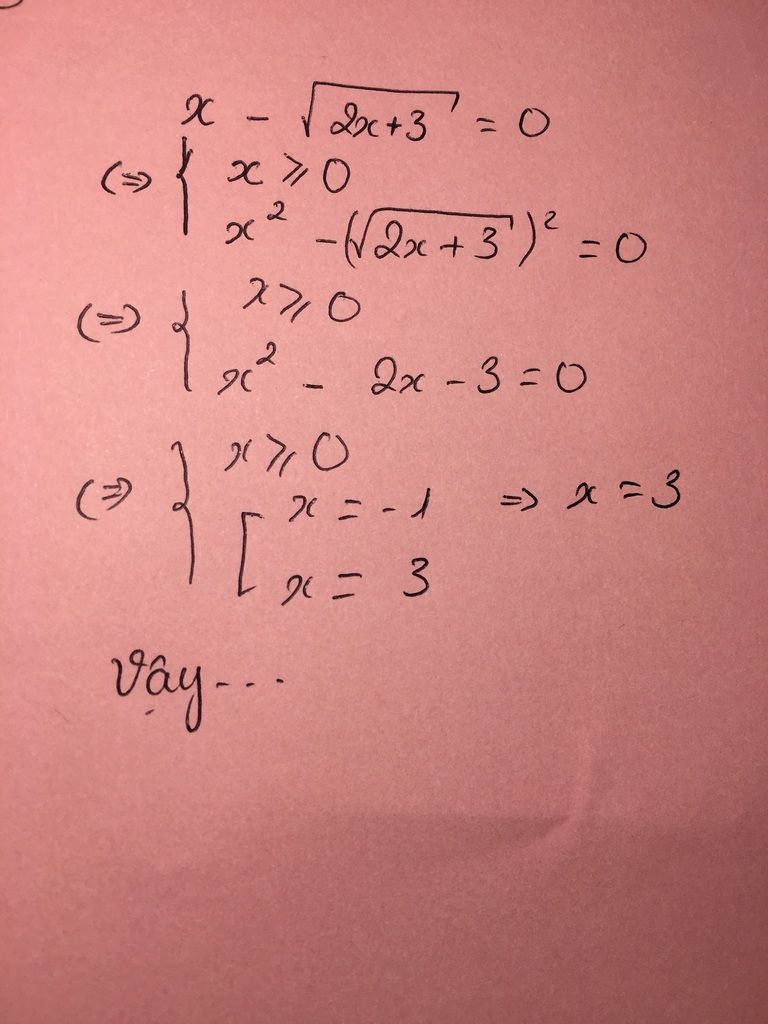 x - √(2x+3) = 0
(=>) { x ⩾ 0
x² - (√(2x+3))² = 0
(=>) { x ⩾ 0
x² - 2x - 3 = 0
(=>) { x ⩾ 0
[ x = -1 => x = 3
x = 3
Vậy...